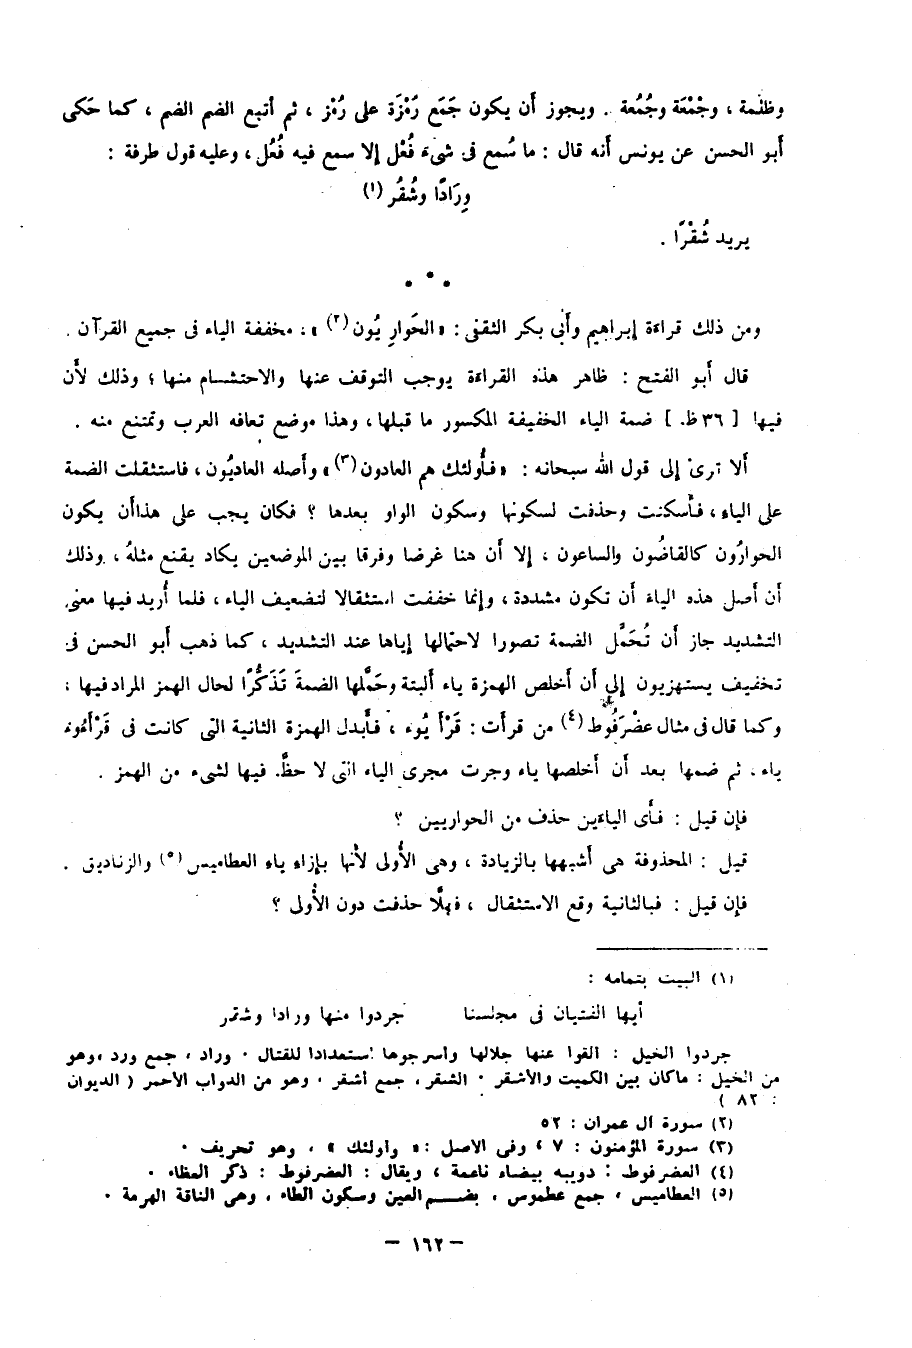 وظلْمة ، وجُمْعَة وجُمُعة . ويجوز أن يكون جَمَع رُمْزَة على رُمْز ، ثم أتبع الضم الضم ، كما حَكى
أبو الحسن عن يونس أنه قال : ما سُمع فى شىء فُعْل إلا سمع فيه فُعُل ، وعليه قول طرفة :
وِرَادًا وشُقُر (١)
يريد شُقْرًا .
ومن ذلك قراءة إبراهيم وأبى بكر الثقفى : «الحَوارِيُون(٢)» ، مخففة الياء فى جميع القرآن .
قال أبو الفتح : ظاهر هذه القراءة يوجب التوقف عنها والاحتشام منها ؛ وذلك لأن
فيها [ ٣٦ظ. ] ضمة الياء الخفيفة المكسور ما قبلها ، وهذا موضع تعافه العرب وتمتنع منه .
ألا ترى إلى قول الله سبحانه : «فأُولئك هم العادون(٣)» وأصله العاديُون ، فاستثقلت الضمة
على الياء ، فأُسكنت وحذفت لسكونها وسكون الواو بعدها ؟ فكان يجب على هذا أن يكون
الحوارُون كالقاضُون والساعون ، إلا أن هنا غرضا وفرقا بين الموضعين يكاد يقنع مثلهُ ، وذلك
أن أصل هذه الياء أن تكون مشددة ، وإنما خففت استثقالا لتضعيف الياء ، فلما أُريد فيها معنى
التشديد جاز أن تُحَمَّل الضمة تصورا لاحتمالها إياها عند التشديد ، كما ذهب أبو الحسن فى
تخفيف يستهزيون إلى أن أخلص الهمزة ياء ألبتة وحَمَّلها الضمةَ تَذَكُّرًا لحال الهمز المراد فيها ؛
وكما قال فى مثال عضْرَفُوط (٤) من قرأت : قَرْأَيُوء ، فأبدل الهمزة الثانية التى كانت فى قَرْأَءُوء
ياء ، ثم ضمها بعد أن أخلصها ياء وجرت مجرى الياء التى لا حظَّ. فيها لشىء من الهمز .
فإن قيل : فأى الياءَين حذف من الحواريين ؟
قيل : المحذوفة هى أشبهها بالزيادة ، وهى الأُولى لأنها بإزاء ياء العطاميس (٥) والزناديق .
فإن قيل : فبالثانية وقع الاستثقال ، فهلَّا حذفت دون الأُولى ؟
(١) البيت بتمامه :
أيها الفتيان فى مجلسنا جردوا منها ورادا وشقر
جردوا الخيل : القوا عنها جلالها وأسرجوها استعدادا للقتال . وراد ، جمع ورد ، وهو
من الخيل : ماكان بين الكميت والأشقر . الشقر ، جمع أشقر ، وهو من الدواب الأحمر ( الديوان
: ٨٢ )
(٢) سورة آل عمران : ٥٢
(٣) سورة المؤمنون : ٧ ، وفى الأصل : « وأولئك » ، وهو تحريف .
(٤) العضرفوط : دويبه بيضاء ناعمة ، ويقال : العضرفوط : ذكر العظاء .
(٥) العطاميس ، جمع عطموس ، بضم العين وسكون الطاء ، وهى الناقة الهرمة .
— ١٦٢ —